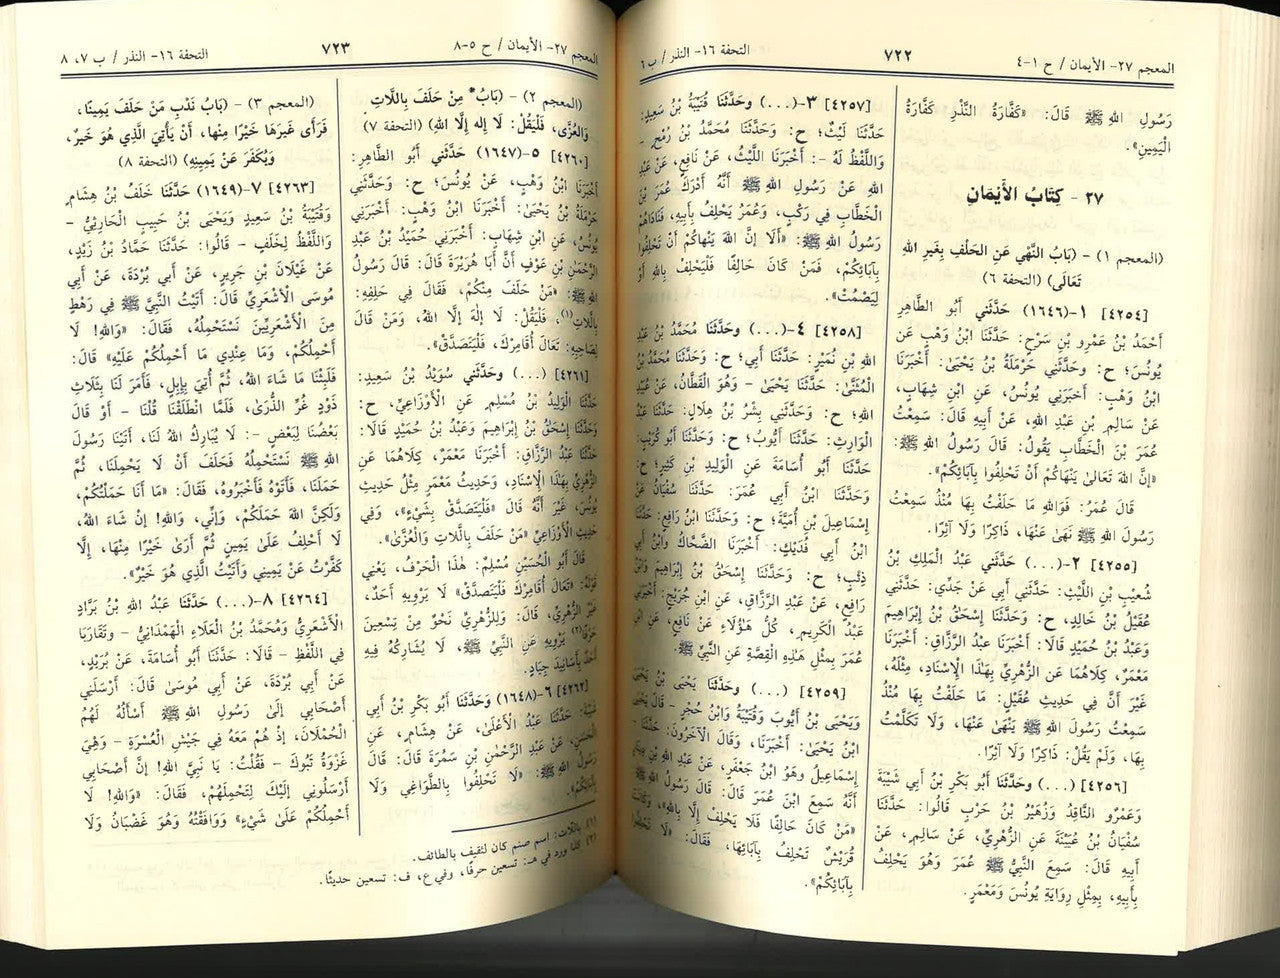 المعجم ٢٧- الأيمان / ح ١-٤
٧٢٢
التحفة ١٦- النذر / ب ٦
رَسُولِ اللهِ ﷺ قَالَ: «كَفَّارَةُ النَّذْرِ كَفَّارَةُ
الْيَمِينِ».
٢٧ - كِتَابُ الأَيْمَانِ
(المعجم ١) - (بَابُ النَّهْيِ عَنِ الحَلْفِ بِغَيرِ اللهِ
تَعَالَى) (التحفة ٦)
[٤٢٥٤] ١-(١٦٤٦) حَدَّثَنِي أَبُو الطَّاهِرِ
أَحْمَدُ بْنُ عَمْرِو بْنِ سَرْحٍ: حَدَّثَنَا ابْنُ وَهْبٍ عَنْ
يُونُسَ؛ ح: وَحَدَّثَنِي حَرْمَلَةُ بْنُ يَحْيَىٰ: أَخْبَرَنَا
ابْنُ وَهْبٍ: أَخْبَرَنِي يُونُسُ، عَنِ ابْنِ شِهَابٍ،
عَنْ سَالِمِ بْنِ عَبْدِ اللهِ، عَنْ أَبِيهِ قَالَ: سَمِعْتُ
عُمَرَ بْنَ الْخَطَّابِ يَقُولُ: قَالَ رَسُولُ اللهِ ﷺ:
«إِنَّ اللهَ تَعَالَىٰ يَنْهَاكُمْ أَنْ تَحْلِفُوا بِآبَائِكُمْ».
قَالَ عُمَرُ: فَوَاللهِ مَا حَلَفْتُ بِهَا مُنْذُ سَمِعْتُ
رَسُولَ اللهِ ﷺ نَهَىٰ عَنْهَا، ذَاكِرًا وَلَا آثِرًا.
[٤٢٥٥] ٢-(...) حَدَّثَنِي عَبْدُ الْمَلِكِ بْنُ
شُعَيْبِ بْنِ اللَّيْثِ: حَدَّثَنِي أَبِي عَنْ جَدِّي: حَدَّثَنِي
عُقَيْلُ بْنُ خَالِدٍ، ح: وَحَدَّثَنَا إِسْحَقُ بْنُ إِبْرَاهِيمَ
وَعَبْدُ بْنُ حُمَيْدٍ قَالَا: أَخْبَرَنَا عَبْدُ الرَّزَّاقِ: أَخْبَرَنَا
مَعْمَرٌ، كِلَاهُمَا عَنِ الزُّهْرِيِّ بِهَذَا الْإِسْنَادِ، مِثْلَهُ،
غَيْرَ أَنَّ فِي حَدِيثِ عُقَيْلٍ: مَا حَلَفْتُ بِهَا مُنْذُ
سَمِعْتُ رَسُولَ اللهِ ﷺ يَنْهَىٰ عَنْهَا، وَلَا تَكَلَّمْتُ
بِهَا، وَلَمْ يَقُلْ: ذَاكِرًا وَلَا آثِرًا.
[٤٢٥٦] (...) وحَدَّثَنَا أَبُو بَكْرِ بْنُ أَبِي شَيْبَةَ
وَعَمْرٌو النَّاقِدُ وَزُهَيْرُ بْنُ حَرْبٍ قَالُوا: حَدَّثَنَا
سُفْيَانُ بْنُ عُيَيْنَةَ عَنِ الزُّهْرِيِّ، عَنْ سَالِمٍ، عَنْ
أَبِيهِ قَالَ: سَمِعَ النَّبِيُّ ﷺ عُمَرَ وَهُوَ يَحْلِفُ
بِأَبِيهِ، بِمِثْلِ رِوَايَةِ يُونُسَ وَمَعْمَرٍ.
[٤٢٥٧] ٣-(...) وحَدَّثَنَا قُتَيْبَةُ بْنُ سَعِيدٍ:
حَدَّثَنَا لَيْثٌ؛ ح: وَحَدَّثَنَا مُحَمَّدُ بْنُ رُمْحٍ -
وَاللَّفْظُ لَهُ -: أَخْبَرَنَا اللَّيْثُ، عَنْ نَافِعٍ، عَنْ عَبْدِ
اللهِ عَنْ رَسُولِ اللهِ ﷺ أَنَّهُ أَدْرَكَ عُمَرَ بْنَ
الْخَطَّابِ فِي رَكْبٍ، وَعُمَرُ يَحْلِفُ بِأَبِيهِ، فَنَادَاهُمْ
رَسُولُ اللهِ ﷺ: «أَلَا إِنَّ اللهَ يَنْهَاكُمْ أَنْ تَحْلِفُوا
بِآبَائِكُمْ، فَمَنْ كَانَ حَالِفًا فَلْيَحْلِفْ بِاللهِ أَوْ
لِيَصْمُتْ».
[٤٢٥٨] ٤-(...) وحَدَّثَنَا مُحَمَّدُ بْنُ عَبْدِ
اللهِ بْنِ نُمَيْرٍ: حَدَّثَنَا أَبِي؛ ح: وَحَدَّثَنَا مُحَمَّدُ بْنُ
الْمُثَنَّىٰ: حَدَّثَنَا يَحْيَىٰ - وَهُوَ الْقَطَّانُ، عَنْ عُبَيْدِ
اللهِ؛ ح: وَحَدَّثَنِي بِشْرُ بْنُ هِلَالٍ: حَدَّثَنَا عَبْدُ
الْوَارِثِ: حَدَّثَنَا أَيُّوبُ؛ ح: وَحَدَّثَنَا أَبُو كُرَيْبٍ:
حَدَّثَنَا أَبُو أُسَامَةَ عَنِ الْوَلِيدِ بْنِ كَثِيرٍ؛ ح:
وَحَدَّثَنَا ابْنُ أَبِي عُمَرَ: حَدَّثَنَا سُفْيَانُ عَنْ
إِسْمَاعِيلَ بْنِ أُمَيَّةَ؛ ح: وَحَدَّثَنَا ابْنُ رَافِعٍ: حَدَّثَنَا
ابْنُ أَبِي فُدَيْكٍ: أَخْبَرَنَا الضَّحَّاكُ وَابْنُ أَبِي
ذِئْبٍ؛ ح: وَحَدَّثَنَا إِسْحَقُ بْنُ إِبْرَاهِيمَ وَابْنُ
رَافِعٍ، عَنْ عَبْدِ الرَّزَّاقِ، عَنِ ابْنِ جُرَيْجٍ: أَخْبَرَنِي
عَبْدُ الْكَرِيمِ، كُلُّ هَؤُلَاءِ عَنْ نَافِعٍ، عَنِ ابْنِ
عُمَرَ بِمِثْلِ هَذِهِ الْقِصَّةِ عَنِ النَّبِيِّ ﷺ.
[٤٢٥٩] (...) وحَدَّثَنَا يَحْيَى بْنُ يَحْيَىٰ
وَيَحْيَى بْنُ أَيُّوبَ وَقُتَيْبَةُ وَابْنُ حُجْرٍ - قَالَ يَحْيَى
ابْنُ يَحْيَىٰ: أَخْبَرَنَا، وَقَالَ الْآخَرُونَ: حَدَّثَنَا -
إِسْمَاعِيلُ وَهُوَ ابْنُ جَعْفَرٍ، عَنْ عَبْدِ اللهِ بْنِ دِينَارٍ
أَنَّهُ سَمِعَ ابْنَ عُمَرَ قَالَ: قَالَ رَسُولُ اللهِ ﷺ:
«مَنْ كَانَ حَالِفًا فَلَا يَحْلِفْ إِلَّا بِاللهِ»، وَكَانَتْ
قُرَيْشٌ تَحْلِفُ بِآبَائِهَا، فَقَالَ: «لَا تَحْلِفُوا
بِآبَائِكُمْ».
المعجم ٢٧- الأيمان / ح ٥-٨
٧٢٣
التحفة ١٦- النذر / ب ٧، ٨
(المعجم ٢) - (بَابُ* مِنْ حَلَفَ بِاللَّاتِ
وَالعُزَّى، فَلْيَقُلْ: لَا إِله إِلَّا الله) (التحفة ٧)
[٤٢٦٠] ٥-(١٦٤٧) حَدَّثَنِي أَبُو الطَّاهِرِ:
أَخْبَرَنَا ابْنُ وَهْبٍ، عَنْ يُونُسَ؛ ح: وَحَدَّثَنِي
حَرْمَلَةُ بْنُ يَحْيَىٰ: أَخْبَرَنَا ابْنُ وَهْبٍ: أَخْبَرَنِي
يُونُسُ، عَنِ ابْنِ شِهَابٍ: أَخْبَرَنِي حُمَيْدُ بْنُ عَبْدِ
الرَّحْمَٰنِ بْنِ عَوْفٍ أَنَّ أَبَا هُرَيْرَةَ قَالَ: قَالَ رَسُولُ
اللهِ ﷺ: «مَنْ حَلَفَ مِنْكُمْ، فَقَالَ فِي حَلِفِهِ:
بِاللَّاتِ(١)، فَلْيَقُلْ: لَا إِلَهَ إِلَّا اللهُ، وَمَنْ قَالَ
لِصَاحِبِهِ: تَعَالَ أُقَامِرْكَ، فَلْيَتَصَدَّقْ».
[٤٢٦١] (...) وحَدَّثَنِي سُوَيْدُ بْنُ سَعِيدٍ:
حَدَّثَنَا الْوَلِيدُ بْنُ مُسْلِمٍ عَنِ الْأَوْزَاعِيِّ، ح:
وَحَدَّثَنَا إِسْحَقُ بْنُ إِبْرَاهِيمَ وَعَبْدُ بْنُ حُمَيْدٍ قَالَا:
حَدَّثَنَا عَبْدُ الرَّزَّاقِ: أَخْبَرَنَا مَعْمَرٌ، كِلَاهُمَا عَنِ
الزُّهْرِيِّ بِهَذَا الْإِسْنَادِ، وَحَدِيثُ مَعْمَرٍ مِثْلُ حَدِيثِ
يُونُسَ، غَيْرَ أَنَّهُ قَالَ «فَلْيَتَصَدَّقْ بِشَيْءٍ»، وَفِي
حَدِيثِ الْأَوْزَاعِيِّ «مَنْ حَلَفَ بِاللَّاتِ وَالْعُزَّىٰ».
قَالَ أَبُو الْحُسَيْنِ مُسْلِمٌ: هَذَا الْحَرْفُ، يَعْنِي
قَوْلَهُ: «تَعَالَ أُقَامِرْكَ فَلْيَتَصَدَّقْ» لَا يَرْوِيهِ أَحَدٌ،
غَيْرُ الزُّهْرِيِّ، قَالَ: وَلِلزُّهْرِيِّ نَحْوٌ مِنْ تِسْعِينَ
حَرْفًا(٢) يَرْوِيهِ عَنِ النَّبِيِّ ﷺ، لَا يُشَارِكُهُ فِيهِ
أَحَدٌ بِأَسَانِيدَ جِيَادٍ.
[٤٢٦٢] ٦-(١٦٤٨) وَحَدَّثَنَا أَبُو بَكْرِ بْنُ أَبِي
شَيْبَةَ: حَدَّثَنَا عَبْدُ الْأَعْلَىٰ، عَنْ هِشَامٍ، عَنِ
الْحَسَنِ، عَنْ عَبْدِ الرَّحْمَٰنِ بْنِ سَمُرَةَ قَالَ: قَالَ
رَسُولُ اللهِ ﷺ: «لَا تَحْلِفُوا بِالطَّوَاغِي وَلَا
بِآبَائِكُمْ».
(المعجم ٣) - (بَابُ نَدْبِ مَنْ حَلَفَ يَمِينًا،
فَرَأَى غَيرَهَا خَيْرًا مِنْها، أَنْ يَأْتِيَ الَّذِي هُوَ خَيرٌ،
وَيُكَفِّرَ عَنْ يَمِينِهِ) (التحفة ٨)
[٤٢٦٣] ٧-(١٦٤٩) حَدَّثَنَا خَلَفُ بْنُ هِشَامٍ
وَقُتَيْبَةُ بْنُ سَعِيدٍ وَيَحْيَى بْنُ حَبِيبٍ الْحَارِثِيُّ -
وَاللَّفْظُ لِخَلَفٍ - قَالُوا: حَدَّثَنَا حَمَّادُ بْنُ زَيْدٍ،
عَنْ غَيْلَانَ بْنِ جَرِيرٍ، عَنْ أَبِي بُرْدَةَ، عَنْ أَبِي
مُوسَى الْأَشْعَرِيِّ قَالَ: أَتَيْتُ النَّبِيَّ ﷺ فِي رَهْطٍ
مِنَ الْأَشْعَرِيِّينَ نَسْتَحْمِلُهُ، فَقَالَ: «وَاللهِ! لَا
أَحْمِلُكُمْ، وَمَا عِنْدِي مَا أَحْمِلُكُمْ عَلَيْهِ» قَالَ:
فَلَبِثْنَا مَا شَاءَ اللهُ، ثُمَّ أُتِيَ بِإِبِلٍ، فَأَمَرَ لَنَا بِثَلَاثِ
ذَوْدٍ غُرِّ الذُّرَىٰ، فَلَمَّا انْطَلَقْنَا قُلْنَا - أَوْ قَالَ
بَعْضُنَا لِبَعْضٍ -: لَا يُبَارِكُ اللهُ لَنَا، أَتَيْنَا رَسُولَ
اللهِ ﷺ نَسْتَحْمِلُهُ فَحَلَفَ أَنْ لَا يَحْمِلَنَا، ثُمَّ
حَمَلَنَا، فَأَتَوْهُ فَأَخْبَرُوهُ، فَقَالَ: «مَا أَنَا حَمَلْتُكُمْ،
وَلَكِنَّ اللهَ حَمَلَكُمْ، وَإِنِّي، وَاللهِ! إِنْ شَاءَ اللهُ،
لَا أَحْلِفُ عَلَىٰ يَمِينٍ ثُمَّ أَرَىٰ خَيْرًا مِنْهَا، إِلَّا
كَفَّرْتُ عَنْ يَمِينِي وَأَتَيْتُ الَّذِي هُوَ خَيْرٌ».
[٤٢٦٤] ٨-(...) حَدَّثَنَا عَبْدُ اللهِ بْنُ بَرَّادٍ
الْأَشْعَرِيُّ وَمُحَمَّدُ بْنُ الْعَلَاءِ الْهَمْدَانِيُّ - وَتَقَارَبَا
فِي اللَّفْظِ - قَالَا: حَدَّثَنَا أَبُو أُسَامَةَ، عَنْ بُرَيْدٍ،
عَنْ أَبِي بُرْدَةَ، عَنْ أَبِي مُوسَىٰ قَالَ: أَرْسَلَنِي
أَصْحَابِي إِلَىٰ رَسُولِ اللهِ ﷺ أَسْأَلُهُ لَهُمُ
الْحُمْلَانَ، إِذْ هُمْ مَعَهُ فِي جَيْشِ الْعُسْرَةِ - وَهِيَ
غَزْوَةُ تَبُوكَ - فَقُلْتُ: يَا نَبِيَّ اللهِ! إِنَّ أَصْحَابِي
أَرْسَلُونِي إِلَيْكَ لِتَحْمِلَهُمْ، فَقَالَ: «وَاللهِ! لَا
أَحْمِلُكُمْ عَلَىٰ شَيْءٍ» وَوَافَقْتُهُ وَهُوَ غَضْبَانُ وَلَا
(١) باللات: اسم صنم كان لثقيف بالطائف.
(٢) كذا ورد في هـ: تسعين حرفًا، وفي ع، ف: تسعين حديثًا.